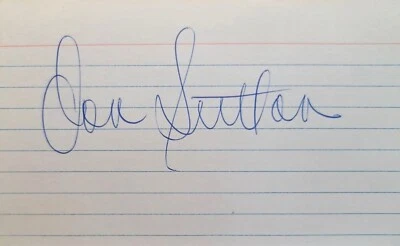 Don Sutton